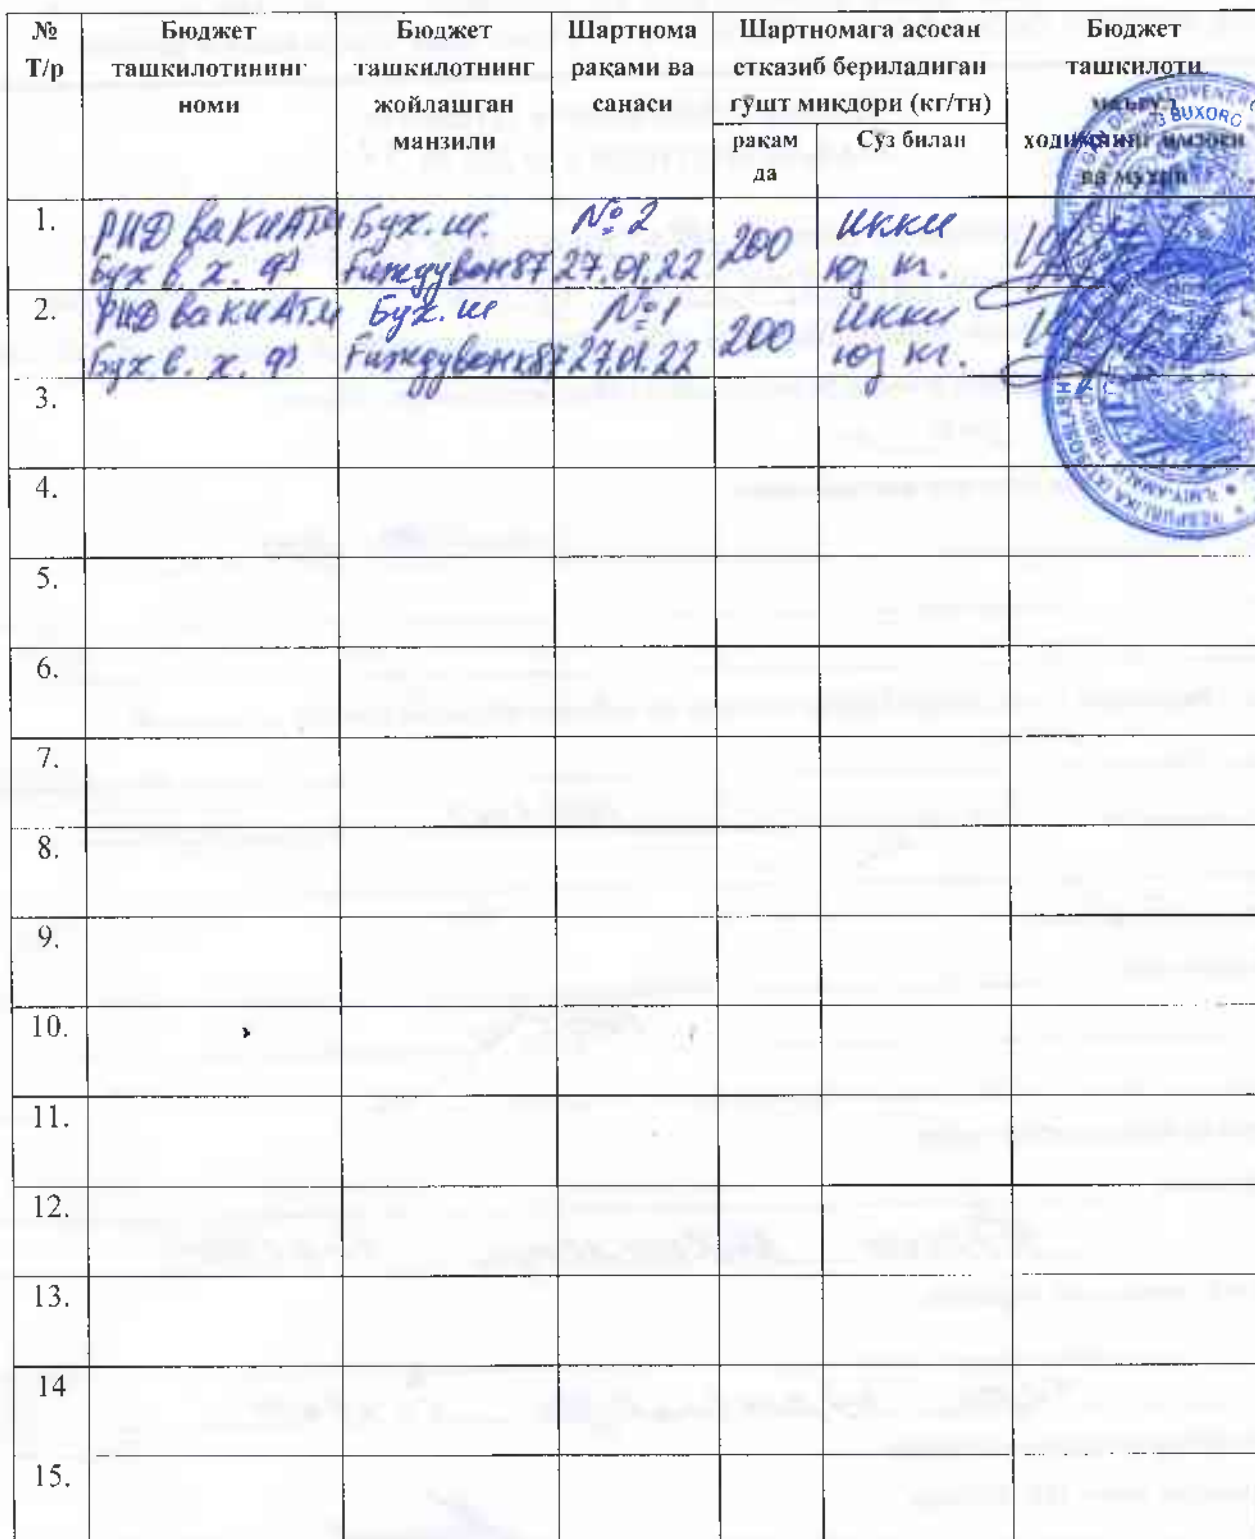 № Т/р
Бюджет ташкилотининг номи
Бюджет ташкилотнинг жойлашган манзили
Шартнома рақами ва санаси
Шартномага асосан етказиб бериладиган гўшт микдори (кг/тн)
рақам да
Сўз билан
Бюджет ташкилоти
ходимининг имзоси
ва мухри
BUXORO
1.
РИД ва КИАТМ
Бух в. х. ф
Бух. ш.
Ғиждувон 87
№ 2
27.01.22
200
икки
юз кг.
2.
РИД ва КИАТМ
Бух. в. х. ф
Бух. ш
Ғиждувон 87
№ 1
27.01.22
200
икки
юз кг.
3.
4.
5.
6.
7.
8.
9.
10.
11.
12.
13.
14
15.